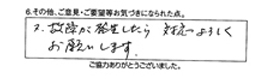 6.その他、ご意見・ご要望等お気づきになられた点。
又、故障が発生したら 対応 よろしく
お願いします。
ご協力ありがとうございました。